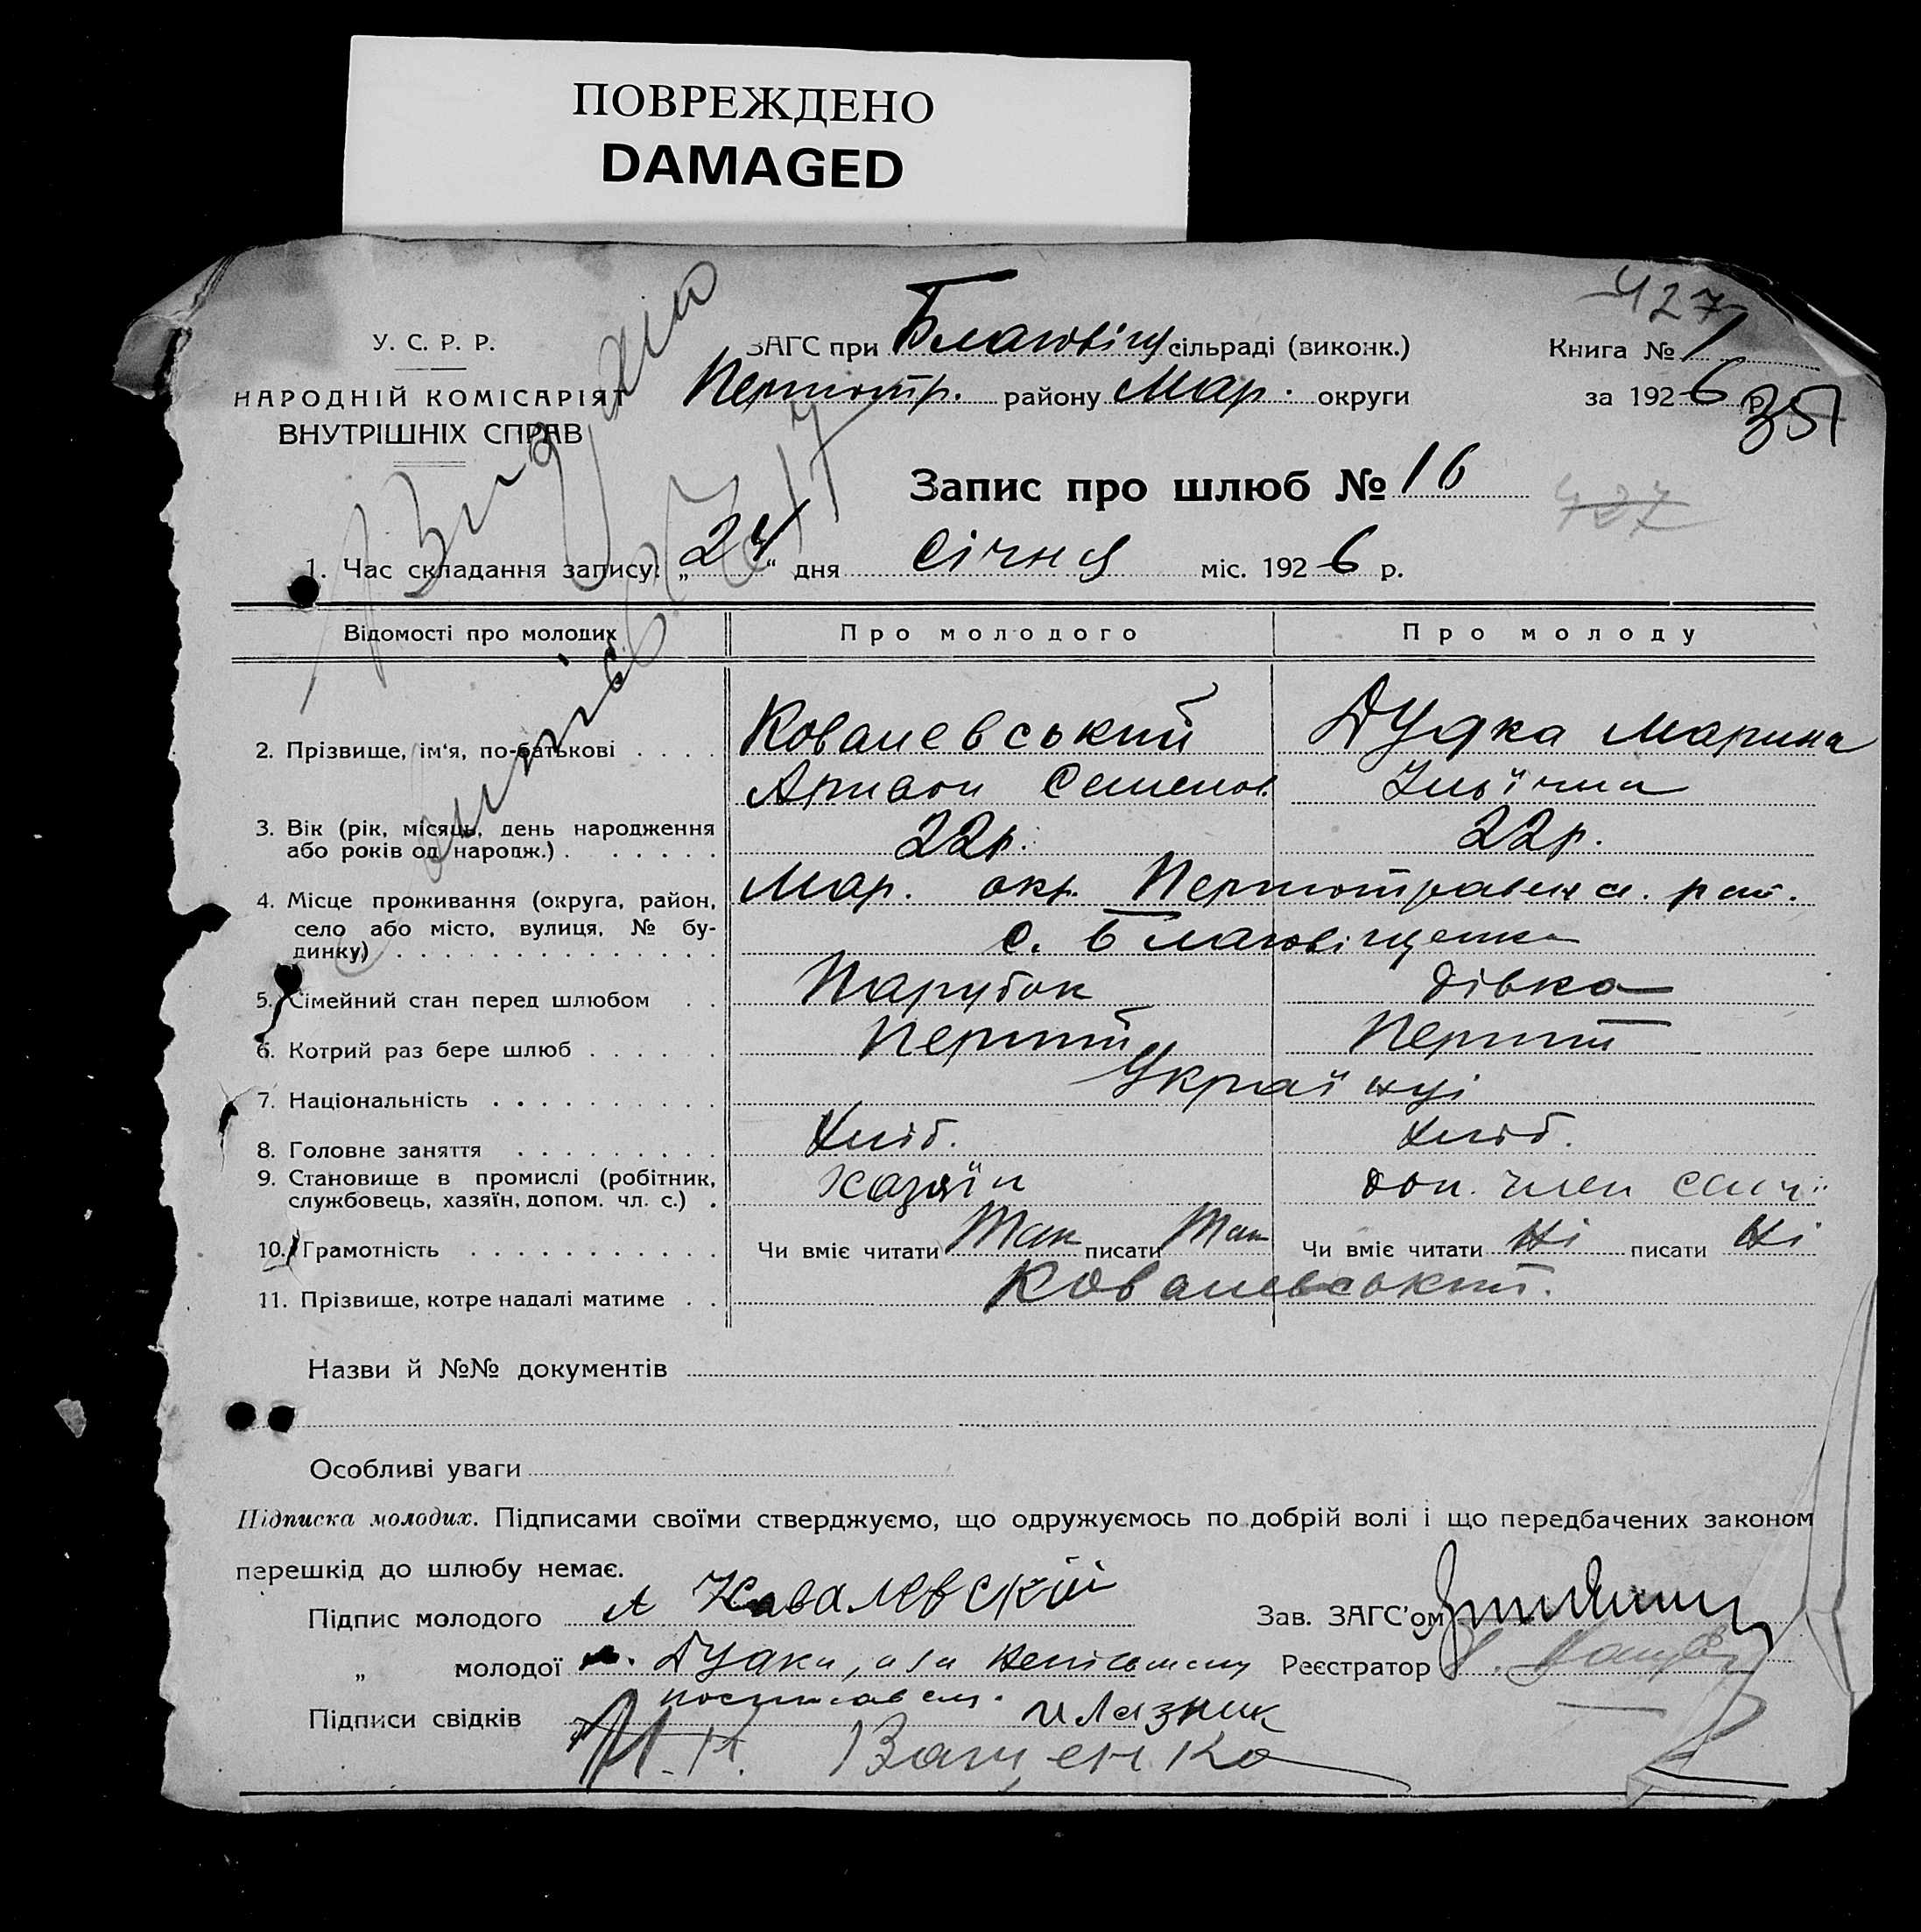 ПОВРЕЖДЕНО
DAMAGED
427
У. С. Р. Р.
НАРОДНІЙ КОМІСАРІЯТ
ВНУТРІШНІХ СПРАВ
ЗАГС при Благовіщ сільраді (виконк.)
Першотр. району Мар. округи
Книга № 1
за 192 6 р.
351
Запис про шлюб № 16
437
1. Час складання запису: „24“ дня січня міс. 192 6 р.
Відомості про молодих Про молодого Про молоду
2. Прізвище, ім'я, по-батькові . . . . Ковалевський Дудка Марина
Семенов. Ильїчна
3. Вік (рік, місяць, день народження
або років од народж.) . . . . . . 22р. 22р.
4. Місце проживання (округа, район, Мар. окр. Першотравнев. рай.
село або місто, вулиця, № бу-
динку) . . . . . . . . . . . . . . с. Благовіщенка
5. Сімейний стан перед шлюбом . . Парубок дівка
6. Котрий раз бере шлюб . . . . . . Перший Перший
7. Національність . . . . . . . . . . Українці
8. Головне заняття . . . . . . . . . Хліб. Хліб.
9. Становище в промислі (робітник,
службовець, хазяїн, допом. чл. с.) . хазяїн доп. член сім'ї
10. Грамотність . . . . . . . . . . . Чи вміє читати Так писати Так Чи вміє читати Ні писати Ні
11. Прізвище, котре надалі матиме . . Ковалевський.
Назви й №№ документів
Особливі уваги
Підписка молодих. Підписами своїми стверджуємо, що одружуємось по добрій волі і що передбачених законом
перешкід до шлюбу немає.
Підпис молодого А Ковалевский Зав. ЗАГС'ом
„ молодої Дудка, а за неписьмену Реєстратор
Підписи свідків
Ващенко